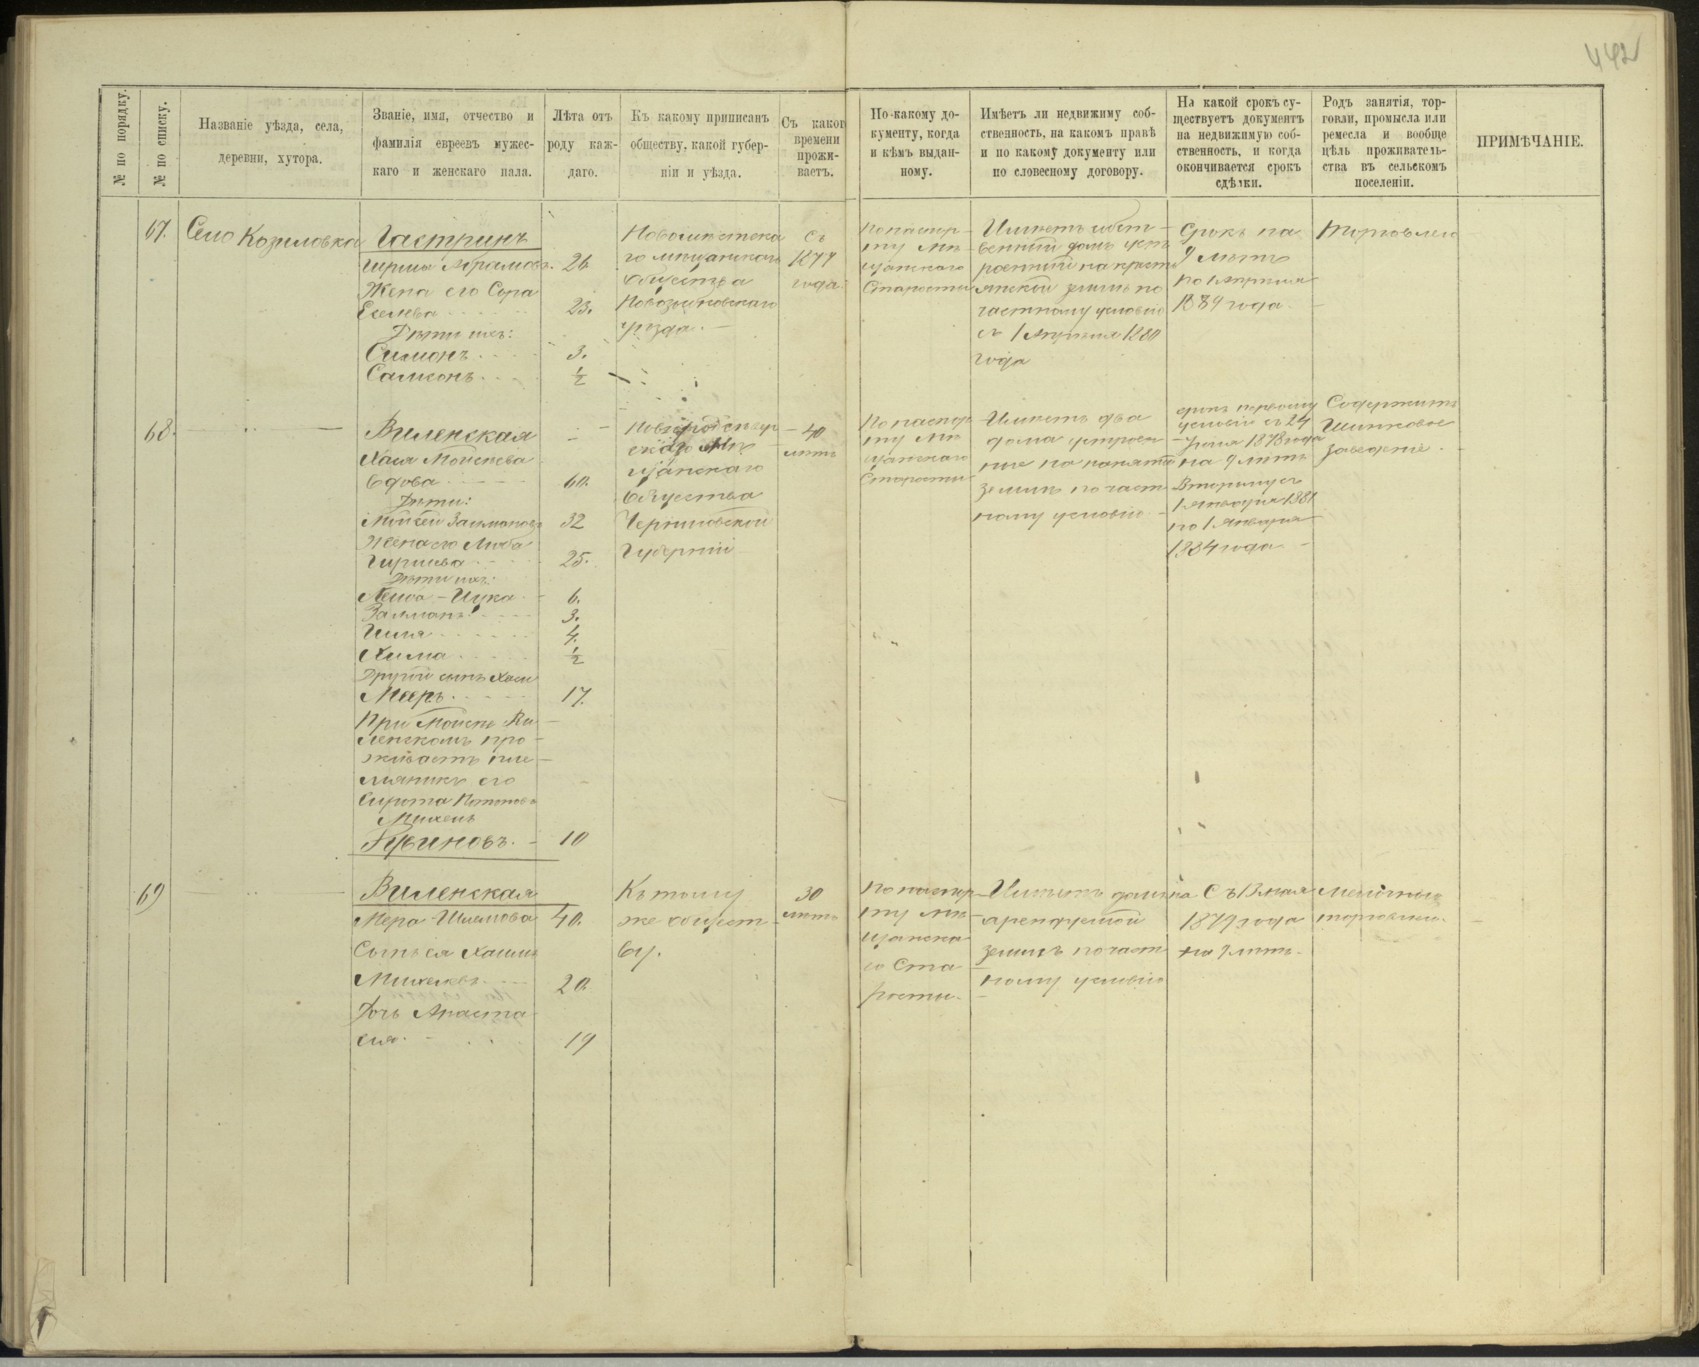 442
№ по порядку.
№ по списку.
Названіе уѣзда, села,
деревни, хутора.
Званіе, имя, отчество и
фамилія евреевъ мужес-
каго и женскаго пала.
Лѣта отъ
роду каж-
даго.
Къ какому приписанъ
обществу, какой губер-
ніи и уѣзда.
Съ каког
времени
прожи-
ваетъ.
По какому до-
кументу, когда
и кѣмъ выдан-
ному.
Имѣетъ ли недвижиму соб-
ственность, на какомъ правѣ
и по какому документу или
по словесному договору.
На какой срокъ су-
ществуетъ документъ
на недвижимую соб-
ственность, и когда
окончивается срокъ
сдѣлки.
Родъ занятія, тор-
говли, промысла или
ремесла и вообще
цѣль проживатель-
ства въ сельскомъ
поселеніи.
ПРИМѢЧАНІЕ.
67.
Село Козиловка
Гастринъ
Гирша Абрамовъ. 26
Жена его Сора
23.
Дѣти ихъ:
Симонъ 3.
Самсонъ ½
Новомѣстска
го мѣщанскаго
Общества
Новозыбковскаго
уѣзда.
Съ
1877
года
По паспор-
ту Мѣ-
щанскаго
Старосты
Имѣетъ собст-
венный домъ уст
роенный на кресть
янской землѣ по
частному условію
съ 1 Апрѣля 1880
года
Срокъ на
9 лѣтъ
по 1 Апрѣля
1889 года
Торговлею
68.
Виленская
Хася Моисеева
вдова 60.
Дѣти:
Моисей Залмановъ 32
Жена его Люба
Гиршева 25.
Дѣти ихъ:
6.
Залманъ 3.
4.
Хима ½
Другой сынъ Хаси
Мееръ 17.
При Моисеѣ Ви-
ленскомъ про-
живаетъ пле-
мянникъ его
Сирота
Михель
10
Новгородсѣвер
скаго Мѣ-
щанскаго
Общества
Черниговской
Губерніи
40
лѣтъ
По паспор
ту Мѣ-
щанскаго
Старосты
Имѣетъ два
дома устроен
ные на нанятой
землѣ по част
ному условію
срокъ первому
условію съ 24
Іюня 1878 года
на 9 лѣтъ
Второму съ
1 Января 1881
по 1 Января
1884 года
Содержитъ
Шинковое
заведеніе.
69
Виленская
Мера Шлемова 40.
Сынъ ея Хаимъ
Михелевъ 20
Дочь Анаста
сія 19
Къ тому
же общест-
ву.
30
лѣтъ
По паспор
ту Мѣ-
щанска
го Ста
росты.
Имѣетъ домъ на
арендуемой
землѣ по част
ному условію
Съ 13 мая
1879 года
на 9 лѣтъ.
Мелочною
торговлею.